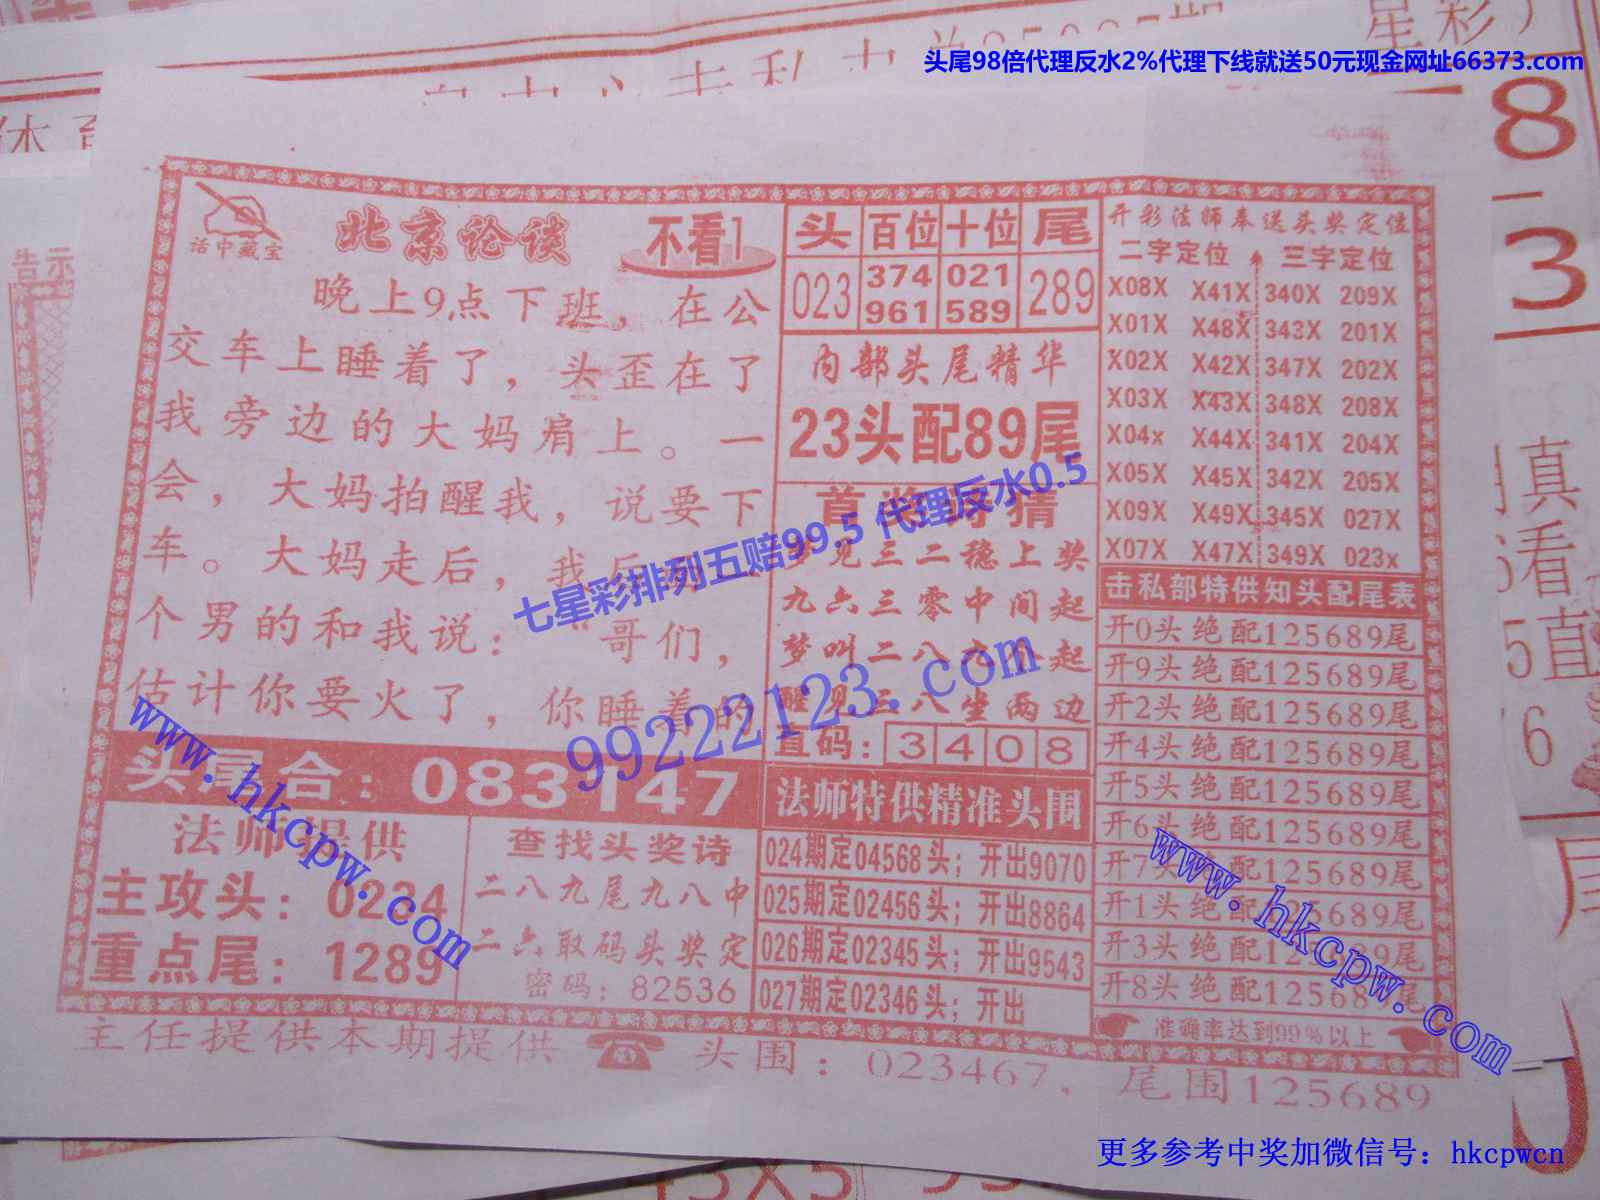 头尾98倍代理反水2%代理下线就送50元现金网址66373.com
8
3
告示
话中藏宝
北京论谈
不看1
晚上9点下班，在公
交车上睡着了，头歪在了
我旁边的大妈肩上。一
会，大妈拍醒我，说要下
车。大妈走后，我后
个男的和我说：“哥们，
估计你要火了，你睡着的
头尾合：083147
法师提供
主攻头：0234
重点尾：1289
查找头奖诗
二八九尾九八中
二六取码头奖定
密码：82536
头 百位 十位 尾
023 374 021 289
961 589
内部头尾精华
23头配89尾
首奖诗猜
梦见三二稳上奖
九六三零中间起
梦叫二八六个起
醒见三八坐两边
直码：3408
法师特供精准头围
024期定04568头；开出9070
025期定02456头；开出8864
026期定02345头；开出9543
027期定02346头；开出
开彩法师奉送头奖定位
二字定位 三字定位
X08X X41X 340X 209X
X01X X48X 343X 201X
X02X X42X 347X 202X
X03X X43X 348X 208X
X04x X44X 341X 204X
X05X X45X 342X 205X
X09X X49X 345X 027X
X07X X47X 349X 023x
击私部特供知头配尾表
开0头绝配125689尾
开9头绝配125689尾
开2头绝配125689尾
开4头绝配125689尾
开5头绝配125689尾
开6头绝配125689尾
开7头绝配125689尾
开1头绝配125689尾
开3头绝配125689尾
开8头绝配125689尾
准确率达到99%以上
主任提供本期提供 头围：023467，尾围125689
七星彩排列五赔99.5 代理反水0.5
99222123.com
www.hkcpw.com
www.hkcpw.com
真
看
5直
6
更多参考中奖加微信号：hkcpwcn